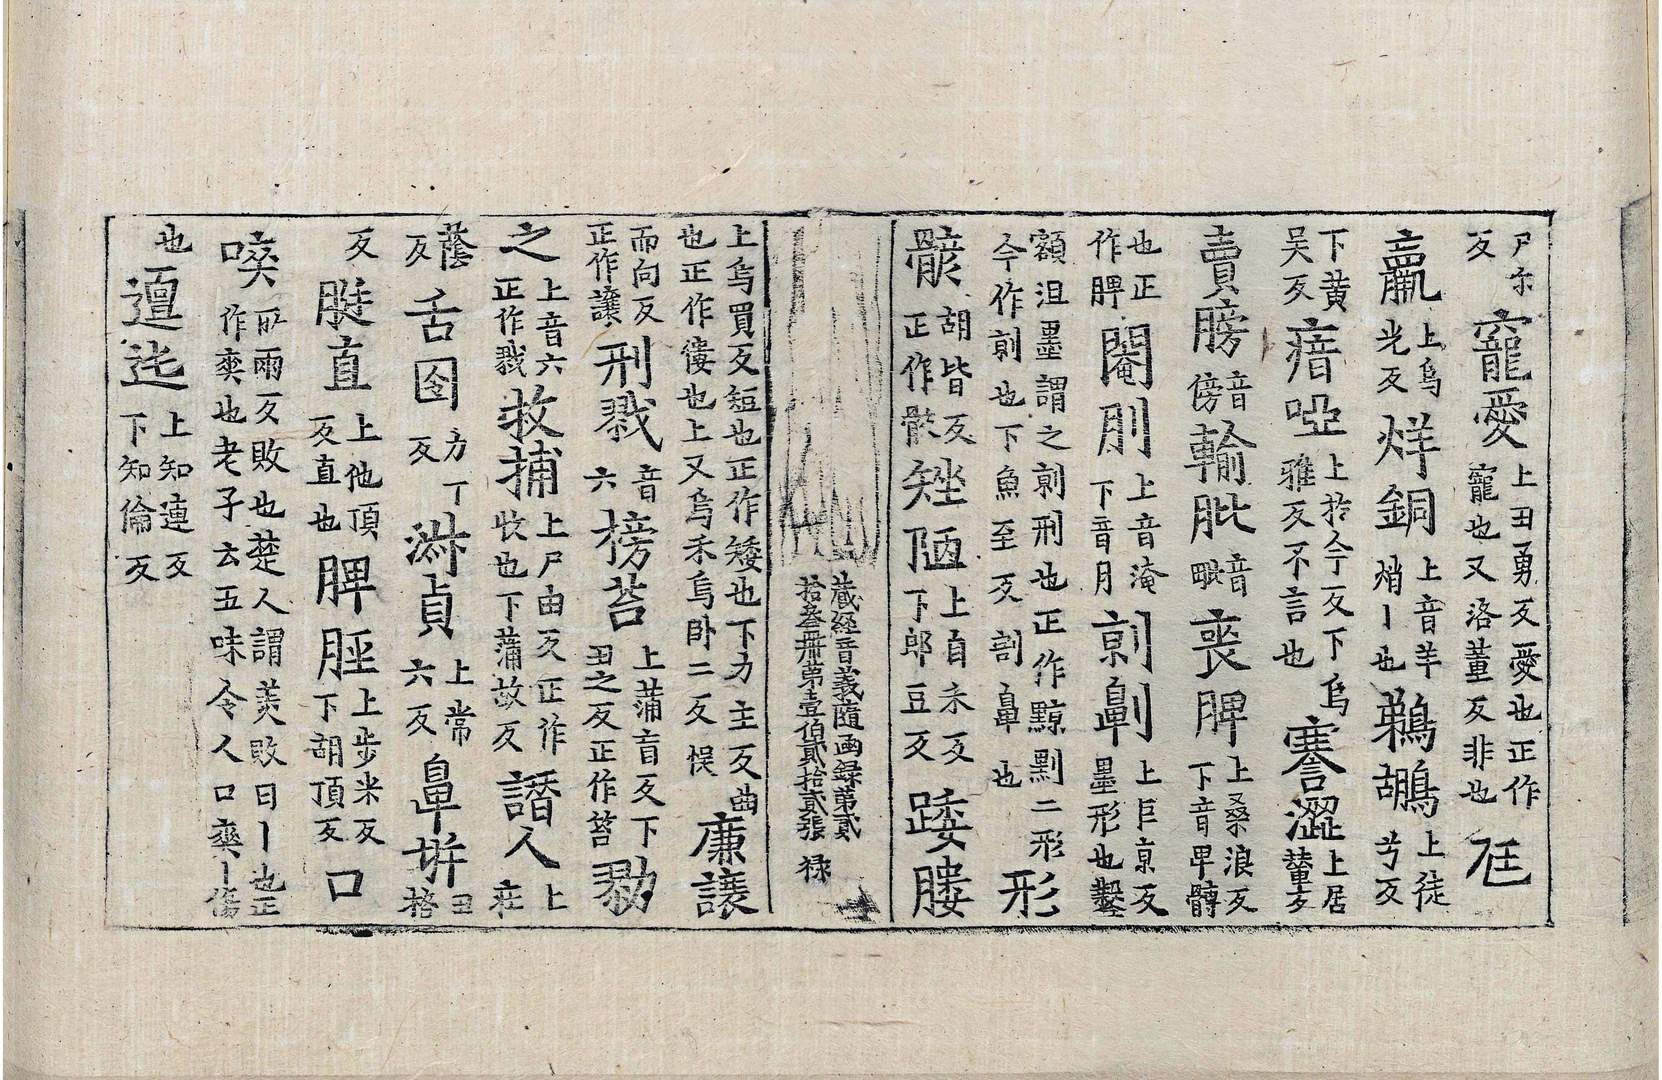 尸尓反寵愛上丑勇反愛也正作寵也又洛董反非也尪
羸上烏光反烊銅上音羊焇丨也鵜鶘上徒兮反
下黄吴反瘖啞上扵今反下烏雅反不言也謇澀上居輦反
賣膀音傍輸肶音毗喪脾上桑浪反下音甲髀
也正作脾閹刖上音淹下音月剠劓上巨京反墨形也鑿
額沮墨謂之剠刑也正作黥剽二形今作剠也下魚至反割鼻也形
骸胡皆反正作骸矬陋上自禾反下郎豆反踒膢
藏經音義隨函録第貳拾叁冊第壹伯貳拾貳張 禄
上烏買反短也正作矮也下力主反曲也正作僂也上又烏禾烏卧二反悮廉讓
而向反正作讓刑戮音六榜笞上蒲盲反下丑之反正作笞勠
之上音六正作戮救捕上尸由反正作收也下蒲故反譖人上莊
蔭反舌囹力丁反淋貞上常六反鼻𡊢丑格
反脡直上他頂反直也脾脛上步米反下胡頂反口
㗕所兩反敗也楚人謂羙敗曰丨也正作爽也老子云五味令人口爽丨傷
也邅迍上知連反下知倫反